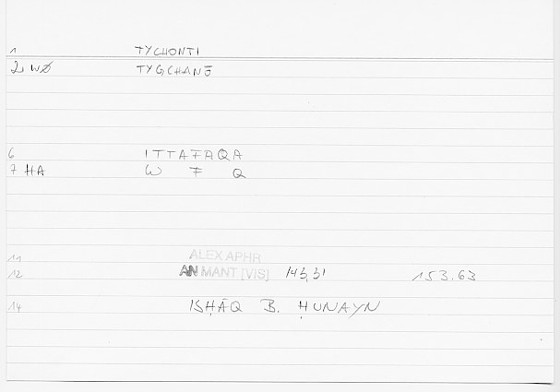 1 TYCHONTI
2 WØ TYGCHANŌ
6 ITTAFAQA
7 HA W F Q
11 ALEX APHR
12 AN MANT [VIS] 145,31 153.63
14 ISḤĀQ B. ḤUNAYN